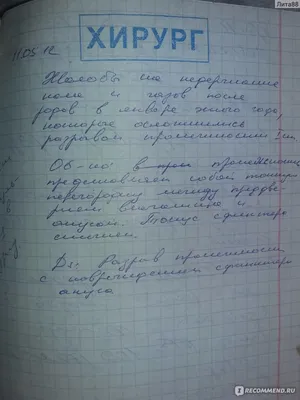 Лита88
11.05.12
ХИРУРГ
Жалобы на недержание
кала и газов после
родов в январе этого года,
которые осложнились
разрывом промежности
Об-но в промежности
представляет собой тонкую
перегородку между преддве-
рием влагалища и
анусом. Тонус сфинктера
снижен
Ds. Разрыв промежности
с повреждением сфинктера
ануса
RECOMMEND.RU